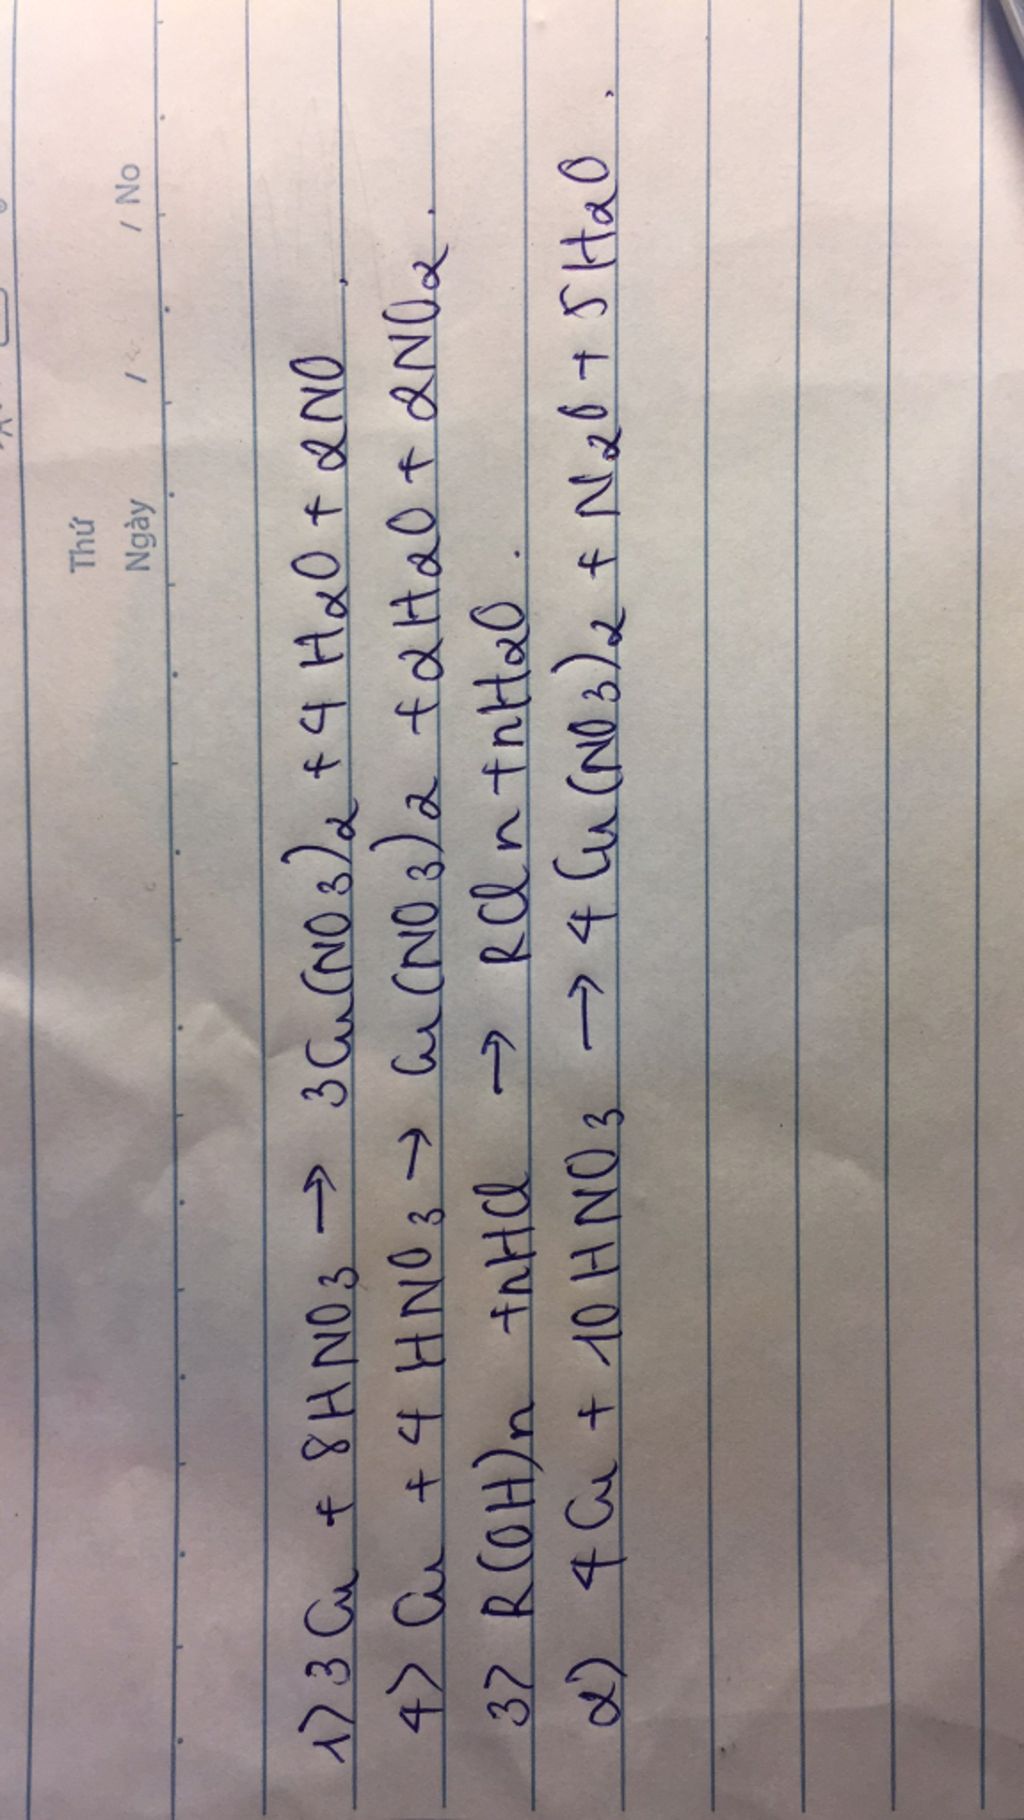 Thứ
Ngày / / No
1) 3Cu + 8HNO3 → 3Cu(NO3)2 + 4H2O + 2NO.
4) Cu + 4HNO3 → Cu(NO3)2 + 2H2O + 2NO2.
3) R(OH)n + nHCl → RCln + nH2O.
2) 4Cu + 10HNO3 → 4Cu(NO3)2 + N2O + 5H2O.